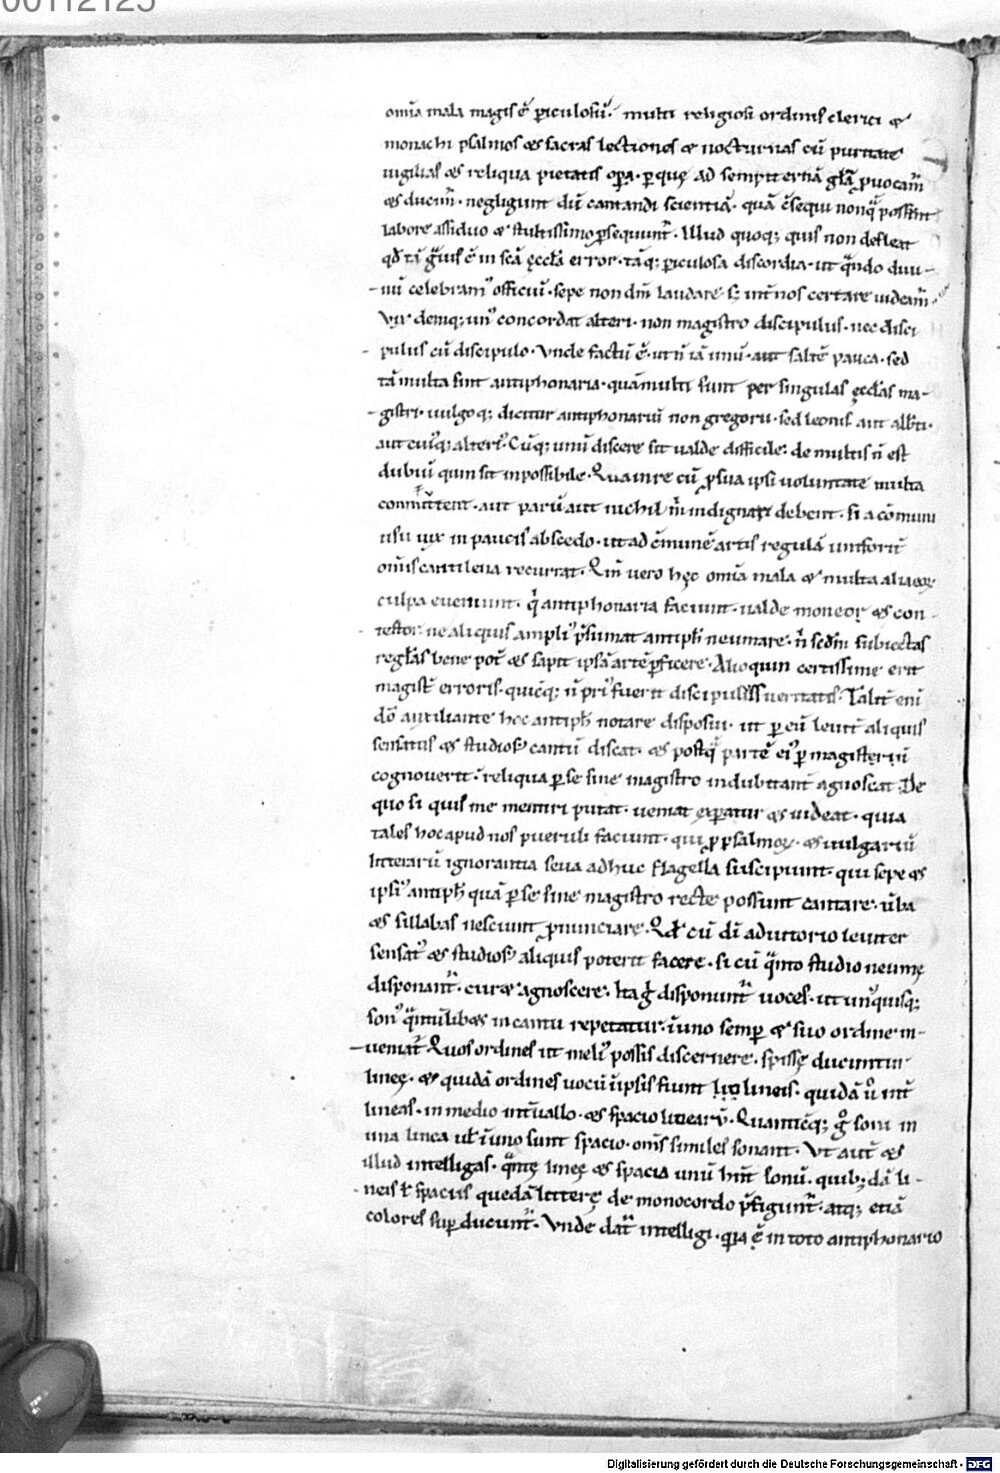 00112125
om̄ia mala magis ē p̱iculosū. multi religiosi ordinis clerici &
monachi psalmos & sacras lectiones & nocturnas cū puritate
uigilias & reliqua pietatis op̱a. p̱ que ad sempiternā gl̄ā ꝓuocam̄
& ducim̄. negligunt dū cantandi scientiā. quā c̄sequi nonq̄ possunt
labore assiduo & stultissimo p̱sequunt̄. Illud quoq; quis non defleat
qd̄ tā ḡuis ē in scā ęccła error. tāq; p̱iculosa discordia. ut q̄ndo diui-
nū celebram᷒ officiū. sepe non dm̄ laudare. s; int̄ nos certare uideam̄
Vix deniq; un᷒ concordat alteri. non magistro discipulus. nec disci
pulus cū discipulo. Vnde factū ē. ut n̄ iā unū. aut saltē pauca. sed
tā multa sint antiphonaria. quā multi sunt per singulas ęccłas ma-
gistri. uulgoq; dicitur antiphonariū non gregorii. sed leonis aut alb̄ti.
aut cui᷒q; alteri᷒. Cūq; unū discere sit ualde difficile. de multis n̄ est
dubiū quin sit inpossibile. Qua in re cū ꝓ sua ipsi uoluntate multa
conmittent. aut parū aut nichil m̄ indignari debent. si a cōmuni
usu uix in paucis abscedo. ut ad c̄munē artis regulā uniforit̄
om̄is cantilena recurrat. Qm̄ vero hęc om̄ia mala & multa alia eoꝝ
culpa eueniunt. q̄ antiphonaria faciunt. ualde moneo & con-
testor. ne aliquis ampli᷒ p̄sumat antiph̄ neumare. n̄ scdm̄ subiectas
regłas bene pot̄ & sapit ipsā artē p̱ficere. Alioquin certissime erit
magist̄ erroris. quicq; n̄ pri᷒ fuerit discipulus ueritatis. Talit̄ eni
dō auxiliante hoc antiph̄ notare disposui. ut p̱ eū leuit̄ aliquis
sensatus & studios᷒ cantū discat. & postq̄ partē ei᷒ p̱ magisteriū
cognouerit. reliqua p̱ se sine magistro indubitant̄ agnoscat. De
quo si quis me mentiri putat. ueniat exp̱iatur & uideat. quia
tales hoc apud nos pueruli faciunt. qui ꝓ psalmoꝝ. & uulgariū
litterarū ignorantia seua adhuc flagella suscipiunt. qui sepe &
ipsi᷒ antiph̄ quā p̱ se sine magistro recte possunt cantare. u̅ba
& sillabas nesciunt ꝓnunciare. Qd̄ cū dī adiutorio leuiter
sensat᷒ & studios᷒ aliquis poterit facere. si cū q̄nto studio neumę
disponant̄. curet agnoscere. Ita g̊ disponunt̄ uoces. ut un᷒quisq;
son᷒ q̄ntūlibet in cantu repetatur. ī uno semp̱ & suo ordine in-
ueniat̄ Quos ordines ut meli᷒ possis discernere. spissę ducuntur
lineę. & quidā ordines uocū ī ipsis fiunt lineis. quidā ů int̄
lineas. in medio int̄uallo. & spacio linearū. Quanticq; g̊ soni in
una linea ut ī uno sunt spacio. om̄s similes sonant. Vt aut̄ &
illud intelligas. q̄ntę lineę & spacia unū hn̄t sonū. quib; dā li-
neis ł spaciis quedā litterę de monocordo p̄figunt̄. atq; etiā
colores sup̱ ducunt̄. Vnde dat̄ intelligi. quia ē in toto antiphonario
Digitalisierung gefördert durch die Deutsche Forschungsgemeinschaft - DFG